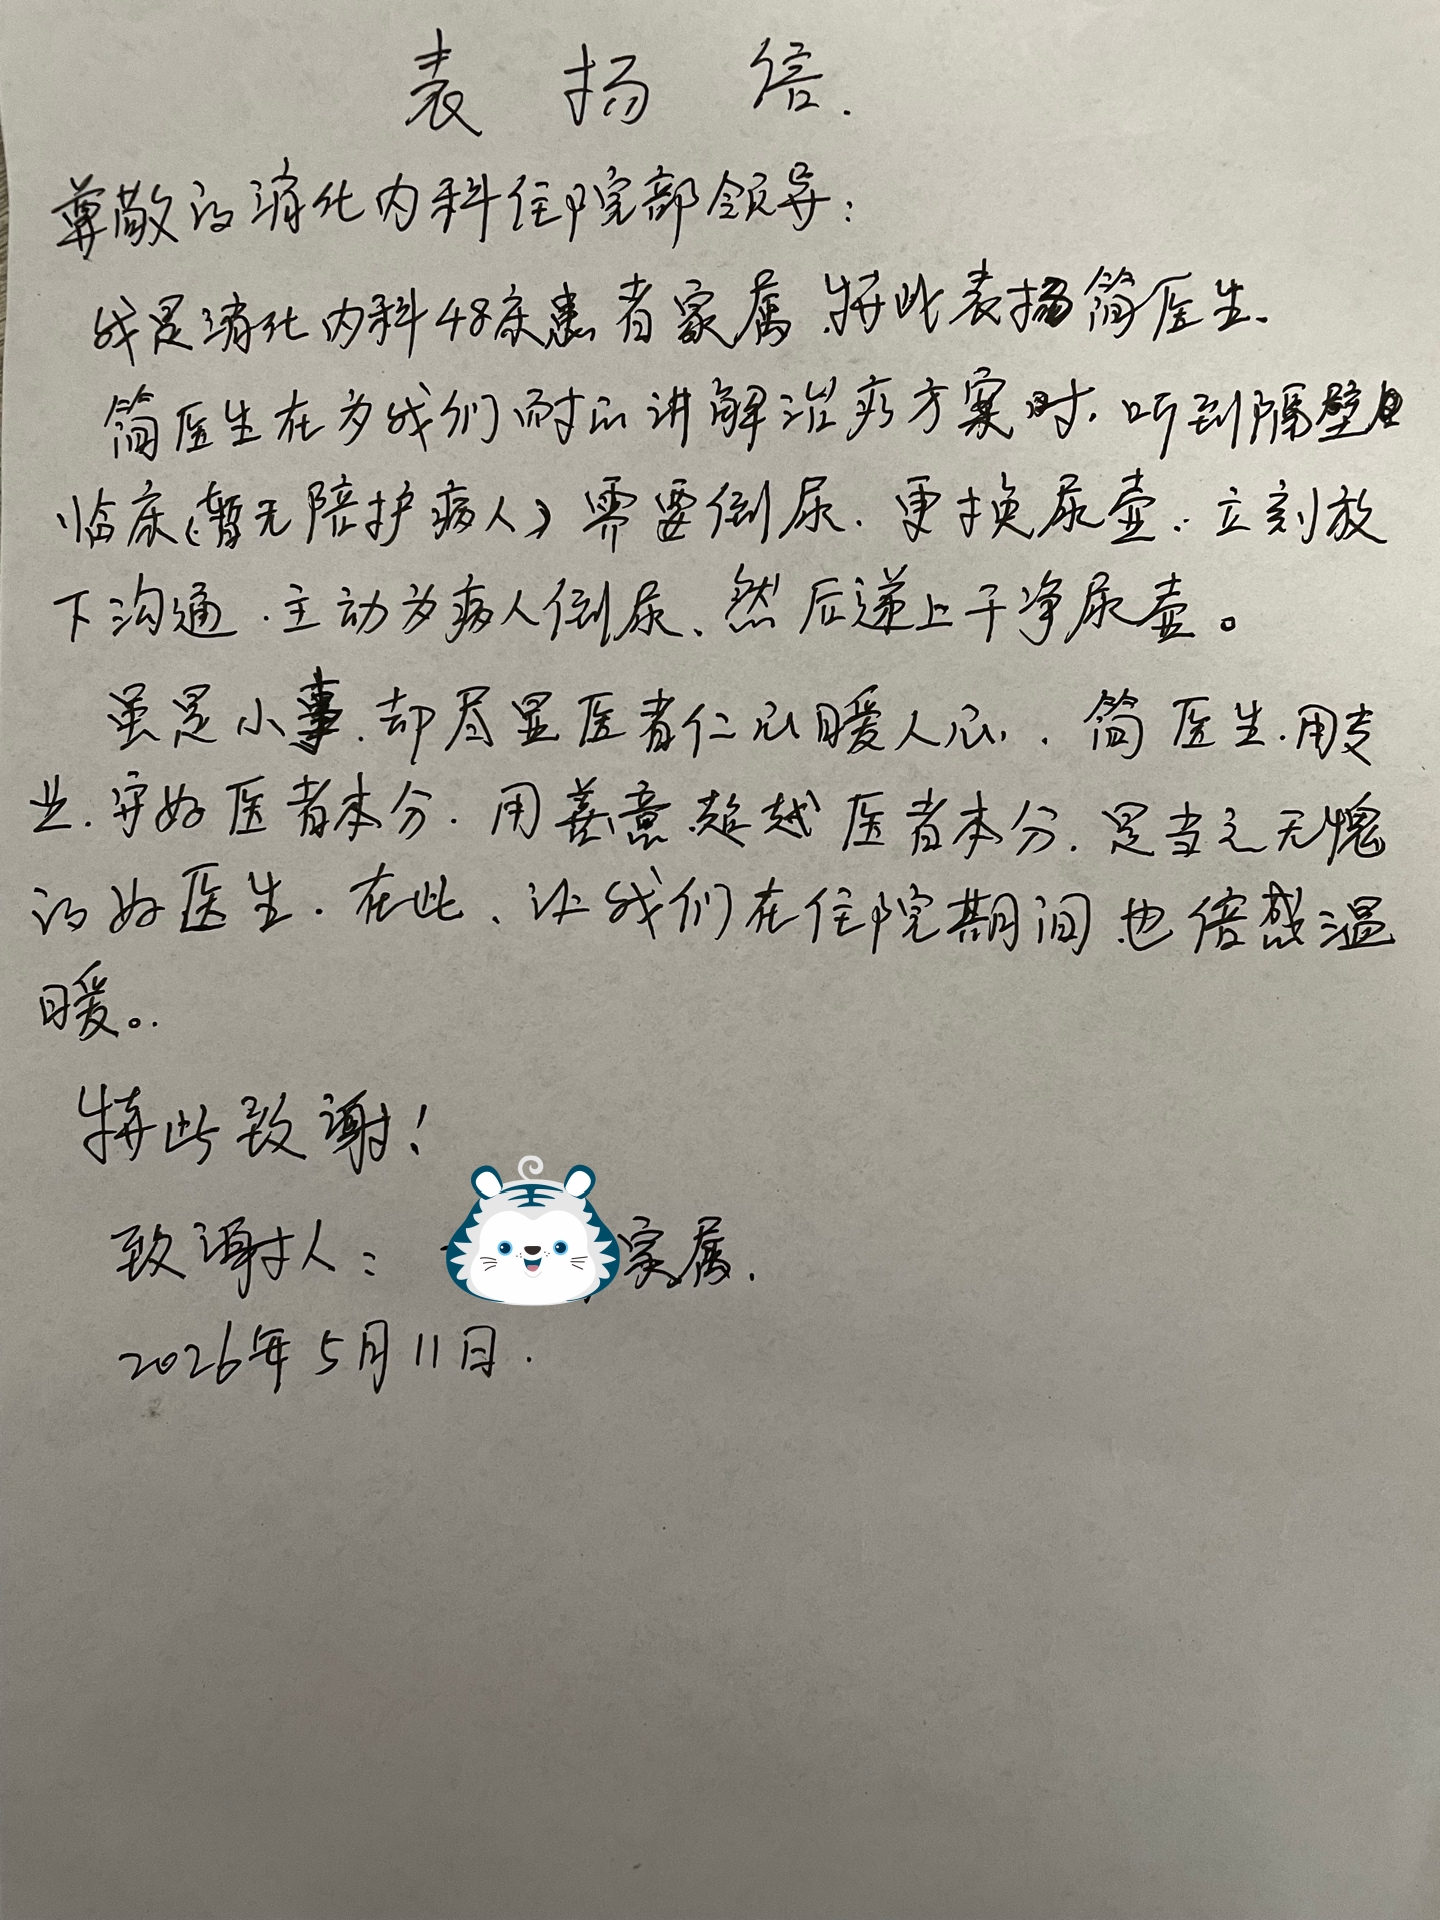 表扬信.
尊敬的消化内科住院部领导:
我是消化内科48床患者家属.特此表扬简医生.
简医生在为我们耐心讲解治疗方案时.听到隔壁
临床(暂无陪护病人)需要倒尿.更换尿壶.立刻放
下沟通.主动为病人倒尿、然后递上干净尿壶。
虽是小事.却尽显医者仁心暖人心.简医生.用专
业.守好医者本分.用善意超越医者本分.是当之无愧
的好医生.在此、让我们在住院期间也倍感温
暖。
特此致谢!
致谢人: 家属.
2026年5月11日.